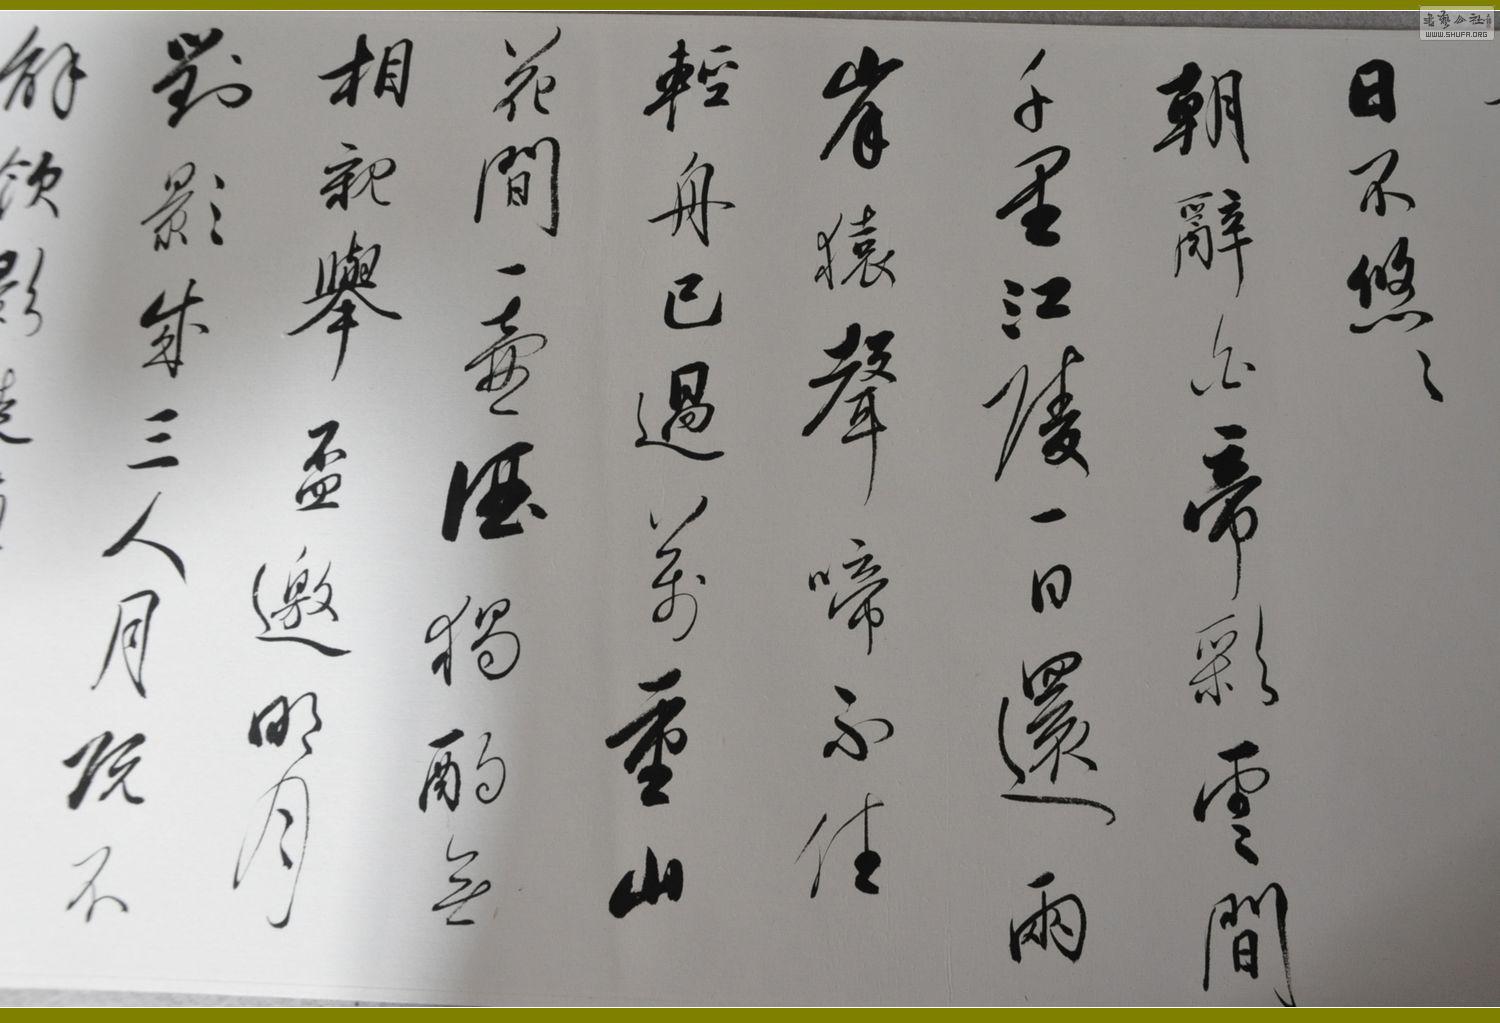 日不悠々
朝辭白帝彩雲間
千里江陵一日還兩
岸猿聲啼不住
輕舟已過萬重山
花間一壺酒獨酌無
相親舉盃邀明月
對影成三人月既不
解飲影徒
WWW.SHUFA.ORG